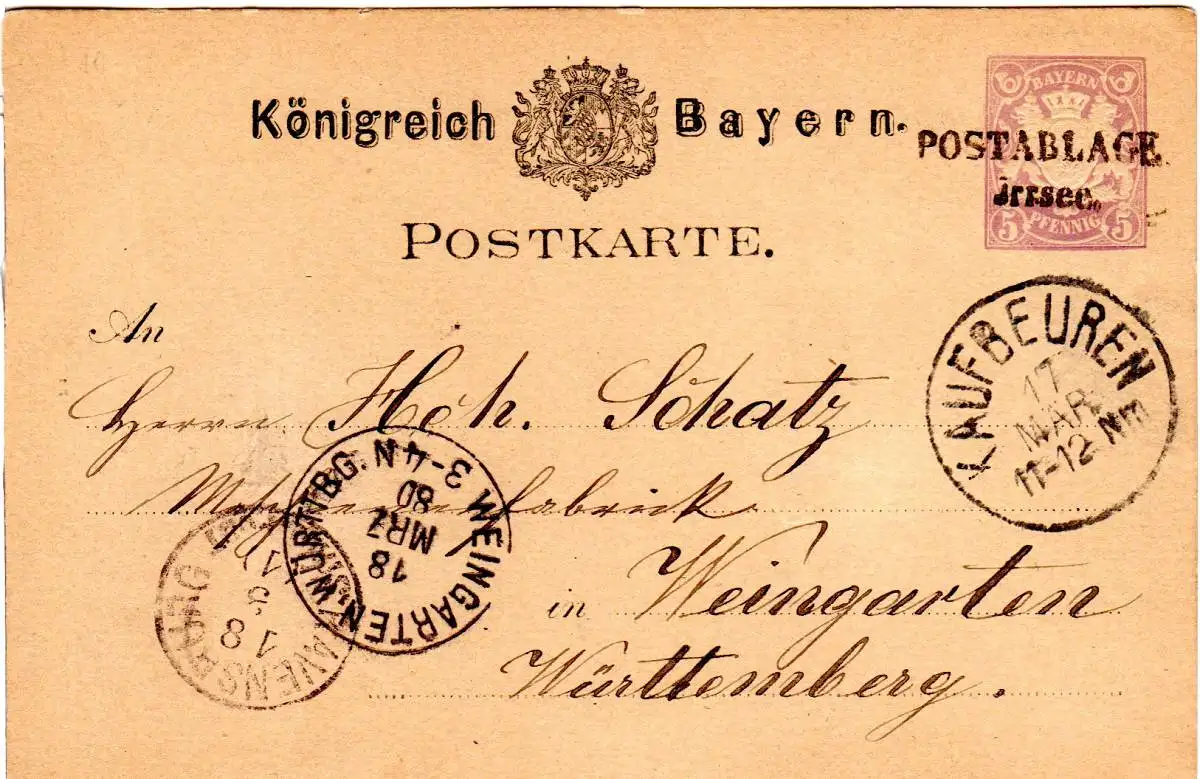 Königreich Bayern.
BAYERN
5 PFENNIG 5
POSTABLAGE
Irrsee.
POSTKARTE.
An
Herrn Hch. Schatz
Maschinenfabrick
in Weingarten
Württemberg.
KAUFBEUREN
17
MAR
11-12 Nm
WEINGARTEN WÜRTTBG.
18
MRZ
80
N. 3-4
18